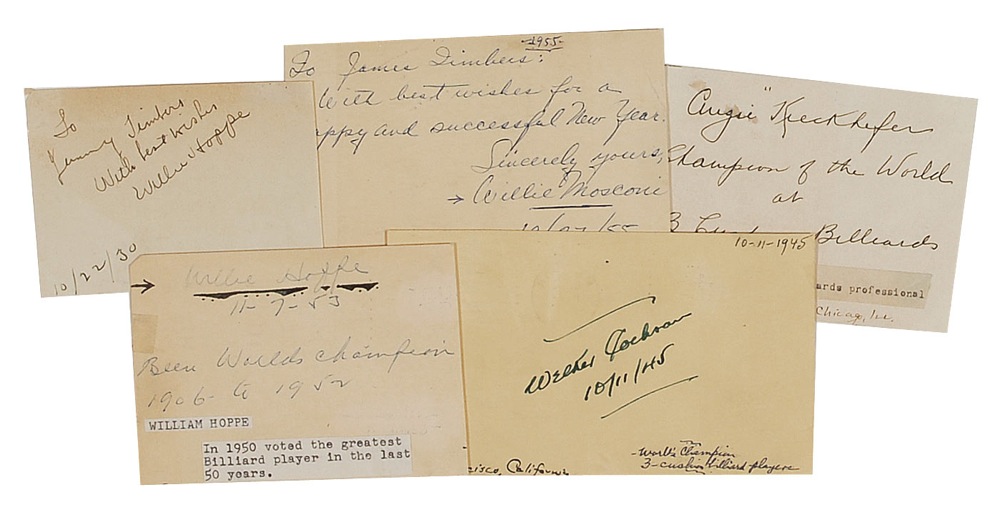 To
Jimmy Timbers
With best wishes
Willie Hoppe
10/22/30
-1955-
To James Timbers:
With best wishes for a
appy and successful New Year.
Sincerely yours,
→ Willie Mosconi
"Augie" Kieckhefer
Champion of the World
at
3 Billiards
ards professional
Chicago, Ill.
Willie Hoppe
11-7-53
Been Worlds champion
1906 to 1952
WILLIAM HOPPE
In 1950 voted the greatest
Billiard player in the last
50 years.
10-11-1945
Welker Cochran
10/11/45
cisco, California
-World's Champion
3-cushion billiard players